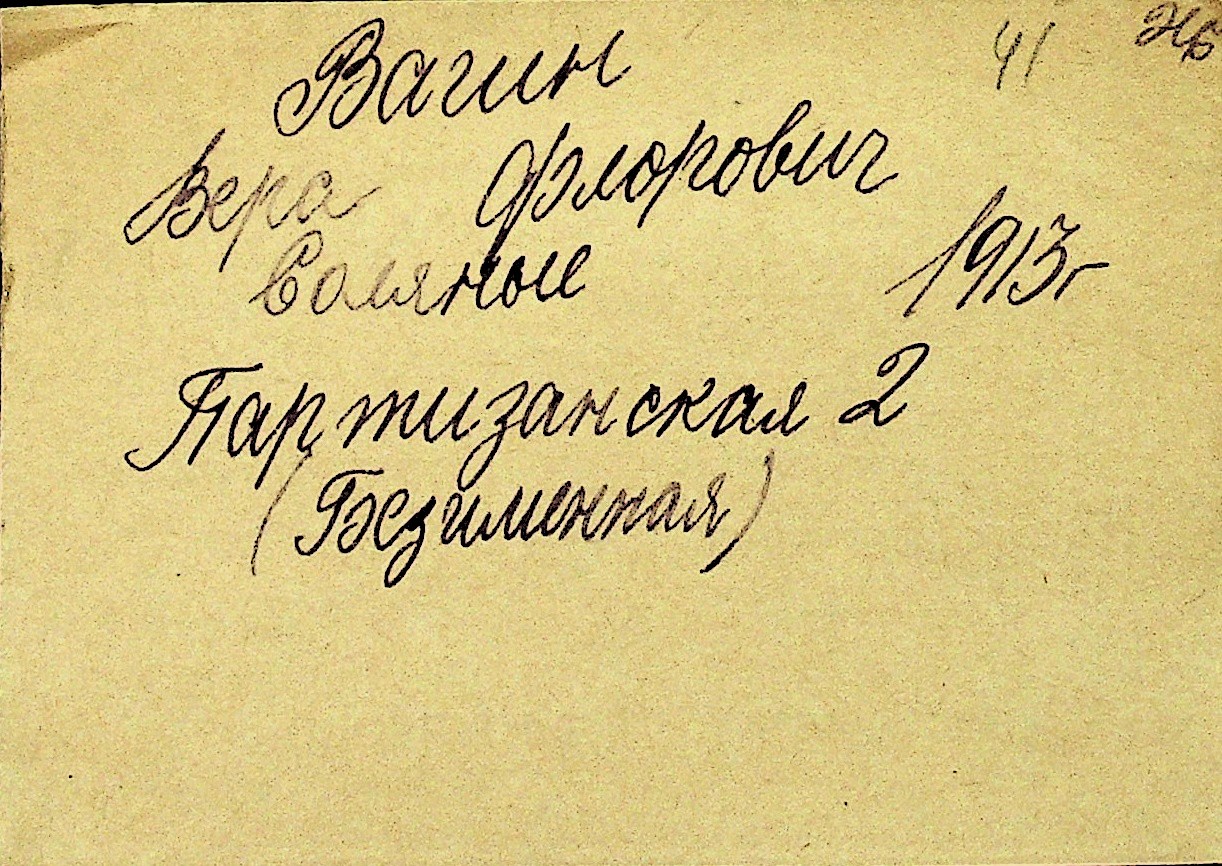 41 НБ
Вагин
Вера Флорович
Соляные 1913г
Партизанская 2
(Безименная)